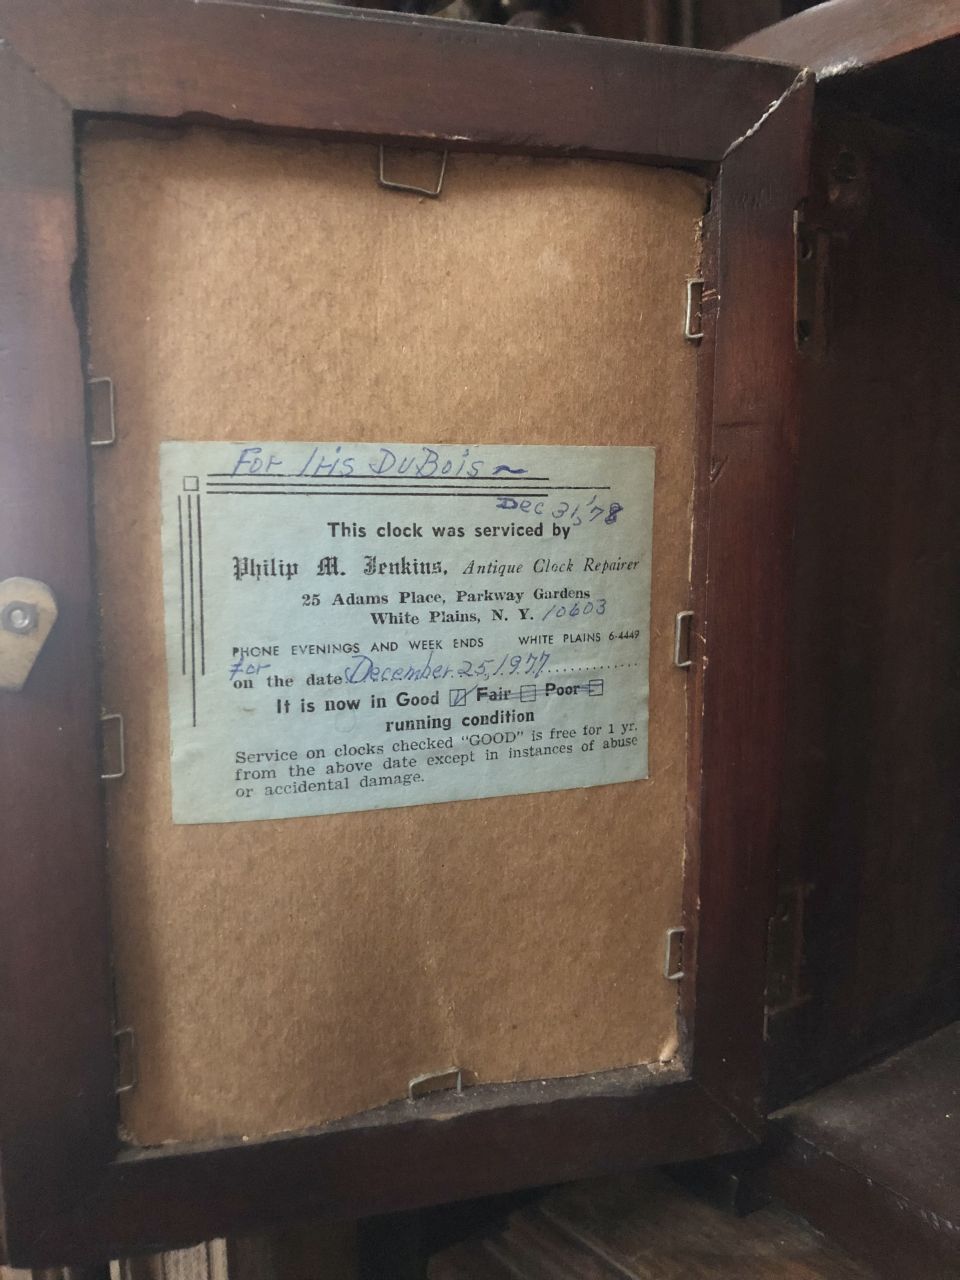 For Iris DuBois~
Dec 31, '78
This clock was serviced by
Philip M. Jenkins, Antique Clock Repairer
25 Adams Place, Parkway Gardens
White Plains, N. Y. 10603
PHONE EVENINGS AND WEEK ENDS WHITE PLAINS 6-4449
For
on the date December 25, 1977
It is now in Good Fair Poor
running condition
Service on clocks checked "GOOD" is free for 1 yr.
from the above date except in instances of abuse
or accidental damage.